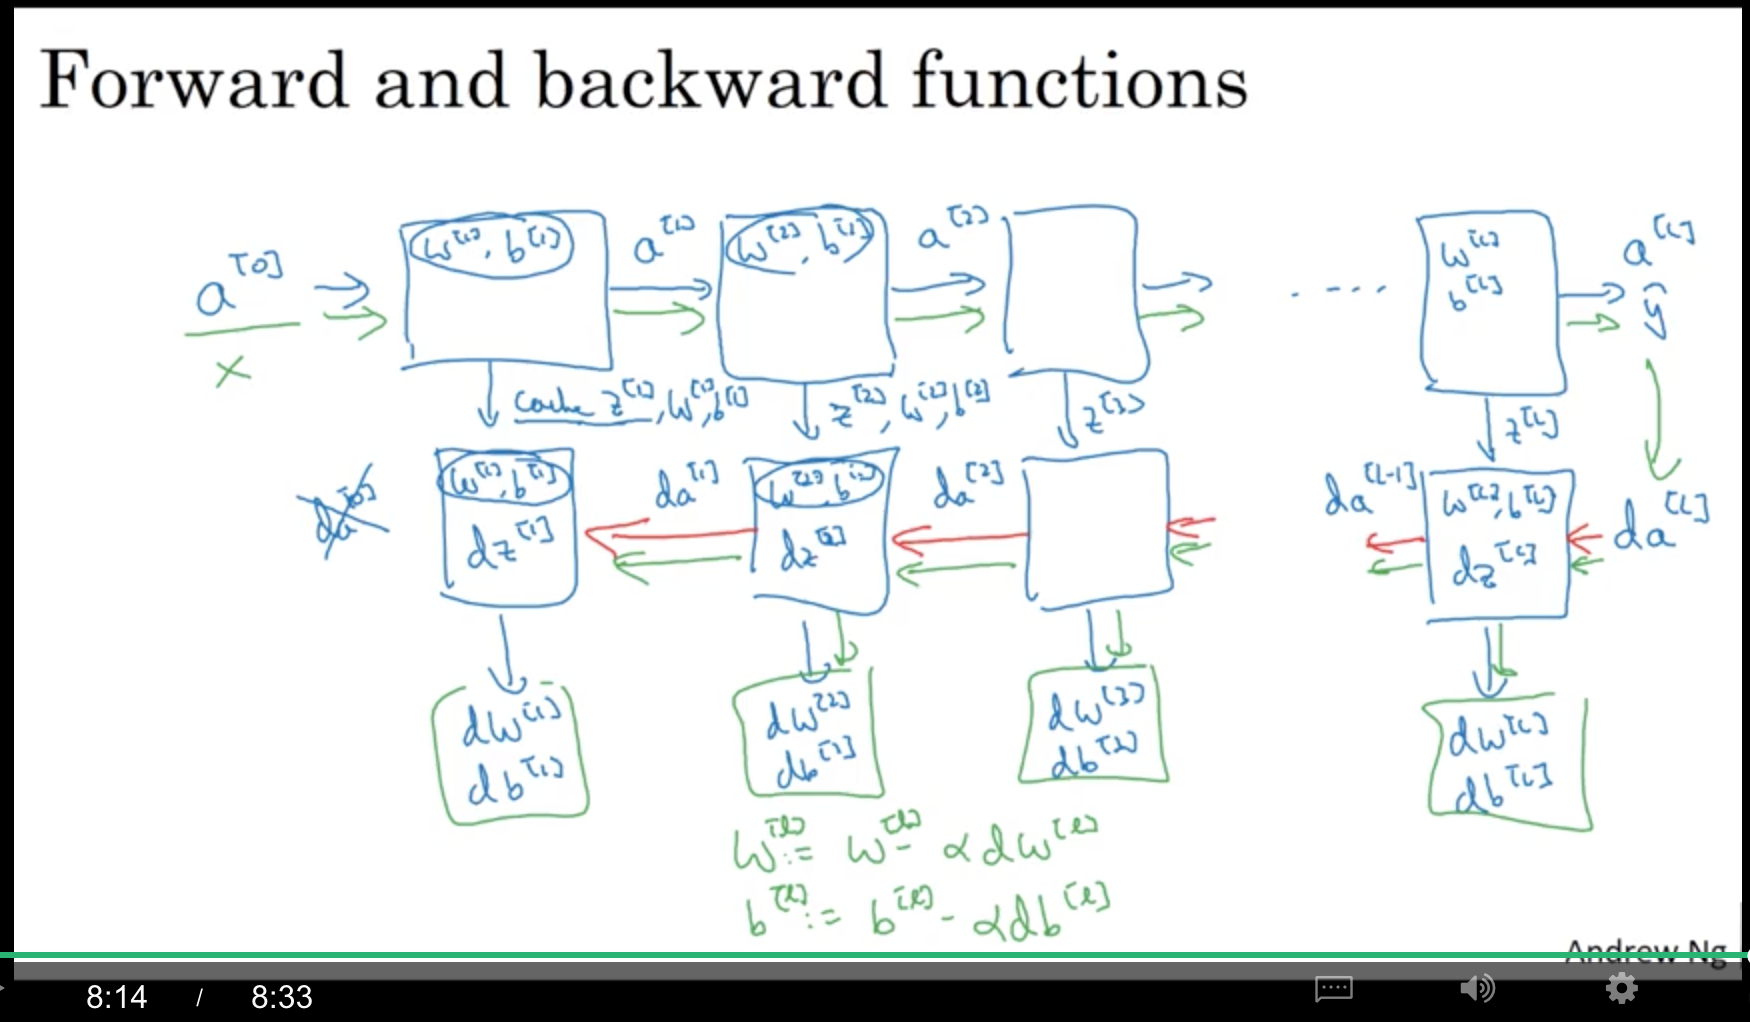 Forward and backward functions
a^[0]
x
w^[1], b^[1]
a^[1]
w^[2], b^[2]
a^[2]
....
w^[L]
b^[L]
a^[L]
ŷ
cache z^[1], w^[1], b^[1]
z^[2], w^[2], b^[2]
z^[3]
z^[L]
da^[0]
w^[1], b^[1]
dz^[1]
da^[1]
w^[2], b^[2]
dz^[2]
da^[2]
da^[L-1]
w^[L], b^[L]
dz^[L]
da^[L]
dw^[1]
db^[1]
dw^[2]
db^[2]
dw^[3]
db^[3]
dw^[L]
db^[L]
w^[l] := w^[l] - αdw^[l]
b^[l] := b^[l] - αdb^[l]
Andrew Ng
8:14 / 8:33